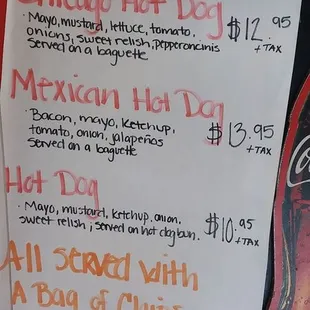 Chicago Hot Dog
· Mayo, mustard, lettuce, tomato,
onions, sweet relish, pepperoncinis
Served on a baguette
$12.95
+TAX
Mexican Hot Dog
· Bacon, mayo, ketchup,
tomato, onion, jalapeños
Served on a baguette
$13.95
+TAX
Hot Dog
· Mayo, mustard, ketchup, onion,
sweet relish ; Served on hot dog bun.
$10.95
+TAX
All served with
A Bag of Chips